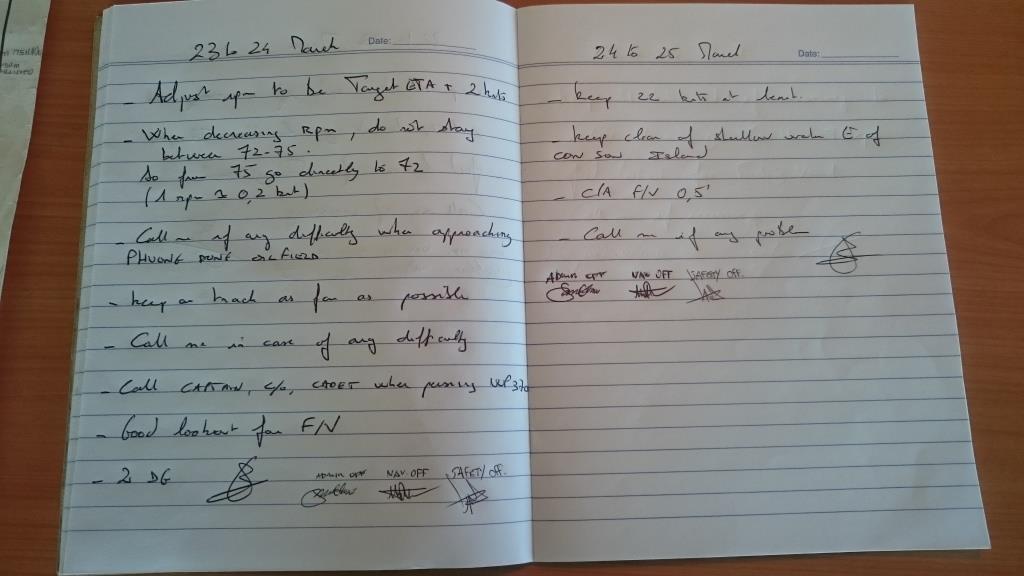 23 to 24 March Date:
- Adjust rpm to be Target ETA + 2 knts
- When decreasing Rpm, do not stay
between 72-75.
So from 75 go directly to 72
(1 rpm ≈ 0,2 knt)
- Call me if any difficulty when approaching
PHUONG DONG OILFIELD
- keep on track as far as possible
- Call me in case of any difficulty
- Call CAPTAIN, C/O, CADET when passing WP 370
- Good lookout for F/V
- 2 DG
ADMIN OFF NAV OFF SAFETY OFF.
24 to 25 March Date:
- keep 22 knts at least.
- keep clear of shallow water E of
CON SON Island
- C/A F/V 0,5'
- Call me if any problem
ADMIN OFF NAV OFF SAFETY OFF.